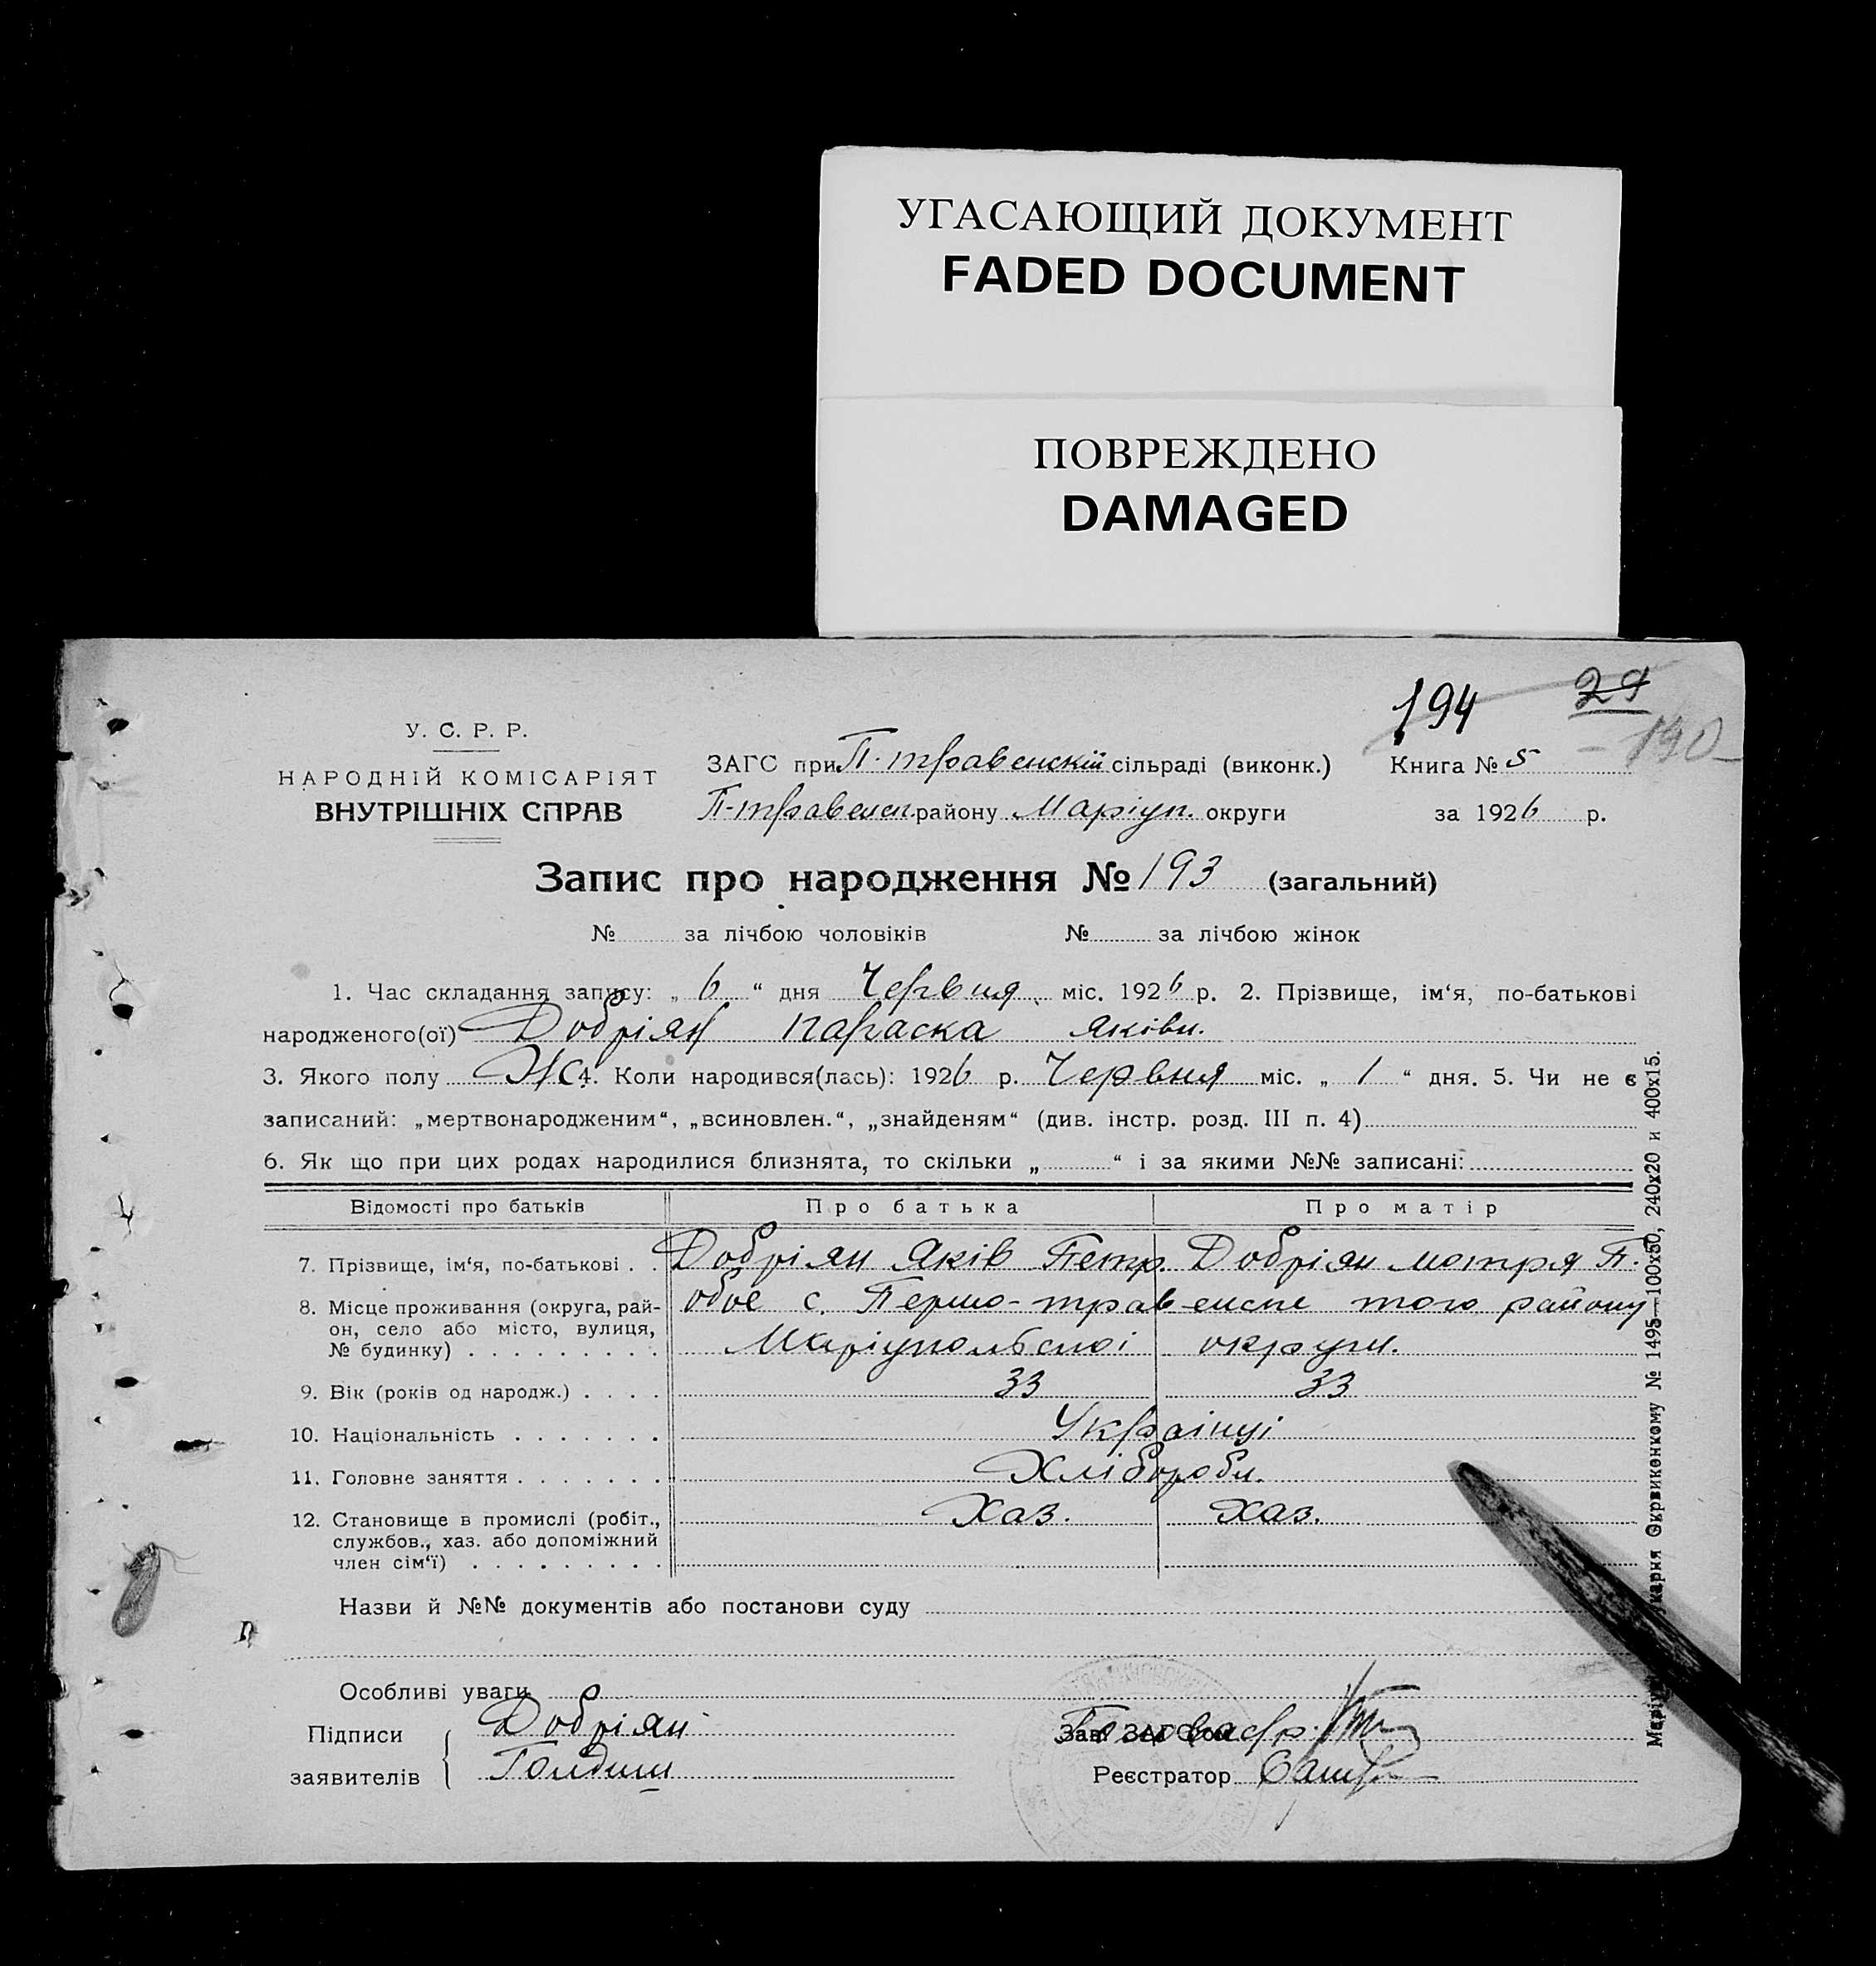 УГАСАЮЩИЙ ДОКУМЕНТ
FADED DOCUMENT
ПОВРЕЖДЕНО
DAMAGED
194 29
190
У. С. Р. Р.
НАРОДНІЙ КОМІСАРІЯТ
ВНУТРІШНІХ СПРАВ
ЗАГС при П-травенскій сільраді (виконк.) Книга № 5
П-травенск. району Маріуп. округи за 1926 р.
Запис про народження № 193 (загальний)
№ за лічбою чоловіків № за лічбою жінок
1. Час складання запису: „ 6 “ дня Червня міс. 1926 р. 2. Прізвище, ім‘я, по-батькові
народженого(ої) Добріян Параска Яківн.
3. Якого полу Ж 4. Коли народився(лась): 1926 р. Червня міс. „ 1 “ дня. 5. Чи не є
записаний: „мертвонародженим“, „всиновлен.“, „знайденям“ (див. інстр. розд. III п. 4)
6. Як що при цих родах народилися близнята, то скільки „ “ і за якими №№ записані:
Відомості про батьків Про батька Про матір
7. Прізвище, ім‘я, по-батькові . . Добріян Яків Петр. Добріян Мотря П.
8. Місце проживання (округа, рай- обое с. Першо-травенске того району
он, село або місто, вулиця,
№ будинку) . . . . . . . . . Маріупольскоі округи.
9. Вік (років од народж.) . . . . 33 33
10. Національність . . . . . . . Украінці
11. Головне заняття . . . . . . . Хлібороби.
12. Становище в промислі (робіт., Хаз. Хаз.
службов., хаз. або допоміжний
член сім‘ї) . . . . . . . . .
Назви й №№ документів або постанови суду
Особливі уваги
Підписи Добріян
Зав. ЗАГС‘ом
заявителів
Реєстратор
№ 1495—100х50, 240х20 и 400х15.